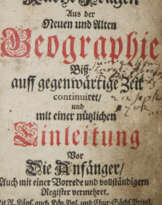 Kurtze Fragen
Aus der
Neuen und Alten
Geographie
Biß
auff gegenwärtige Zeit
continuiret/
und
mit einer nützlichen
Einleitung
Vor
Die Anfänger/
Auch mit einer Vorrede und vollständigern
Register vermehret.